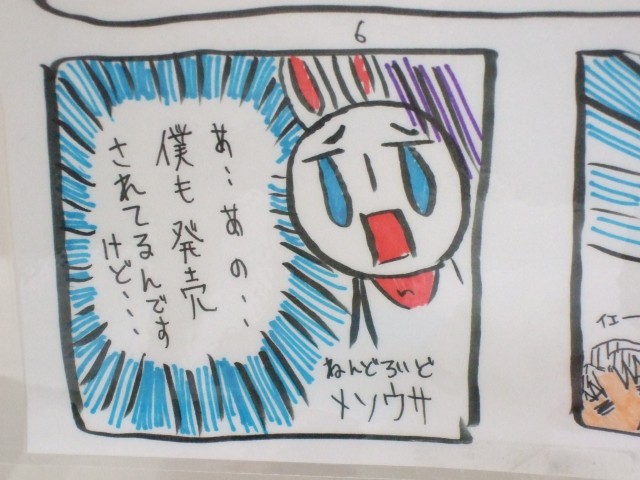 6
あ‥あの‥
僕も発売
されてるんです
けど‥‥
ねんどろいど
メソウサ
イエー